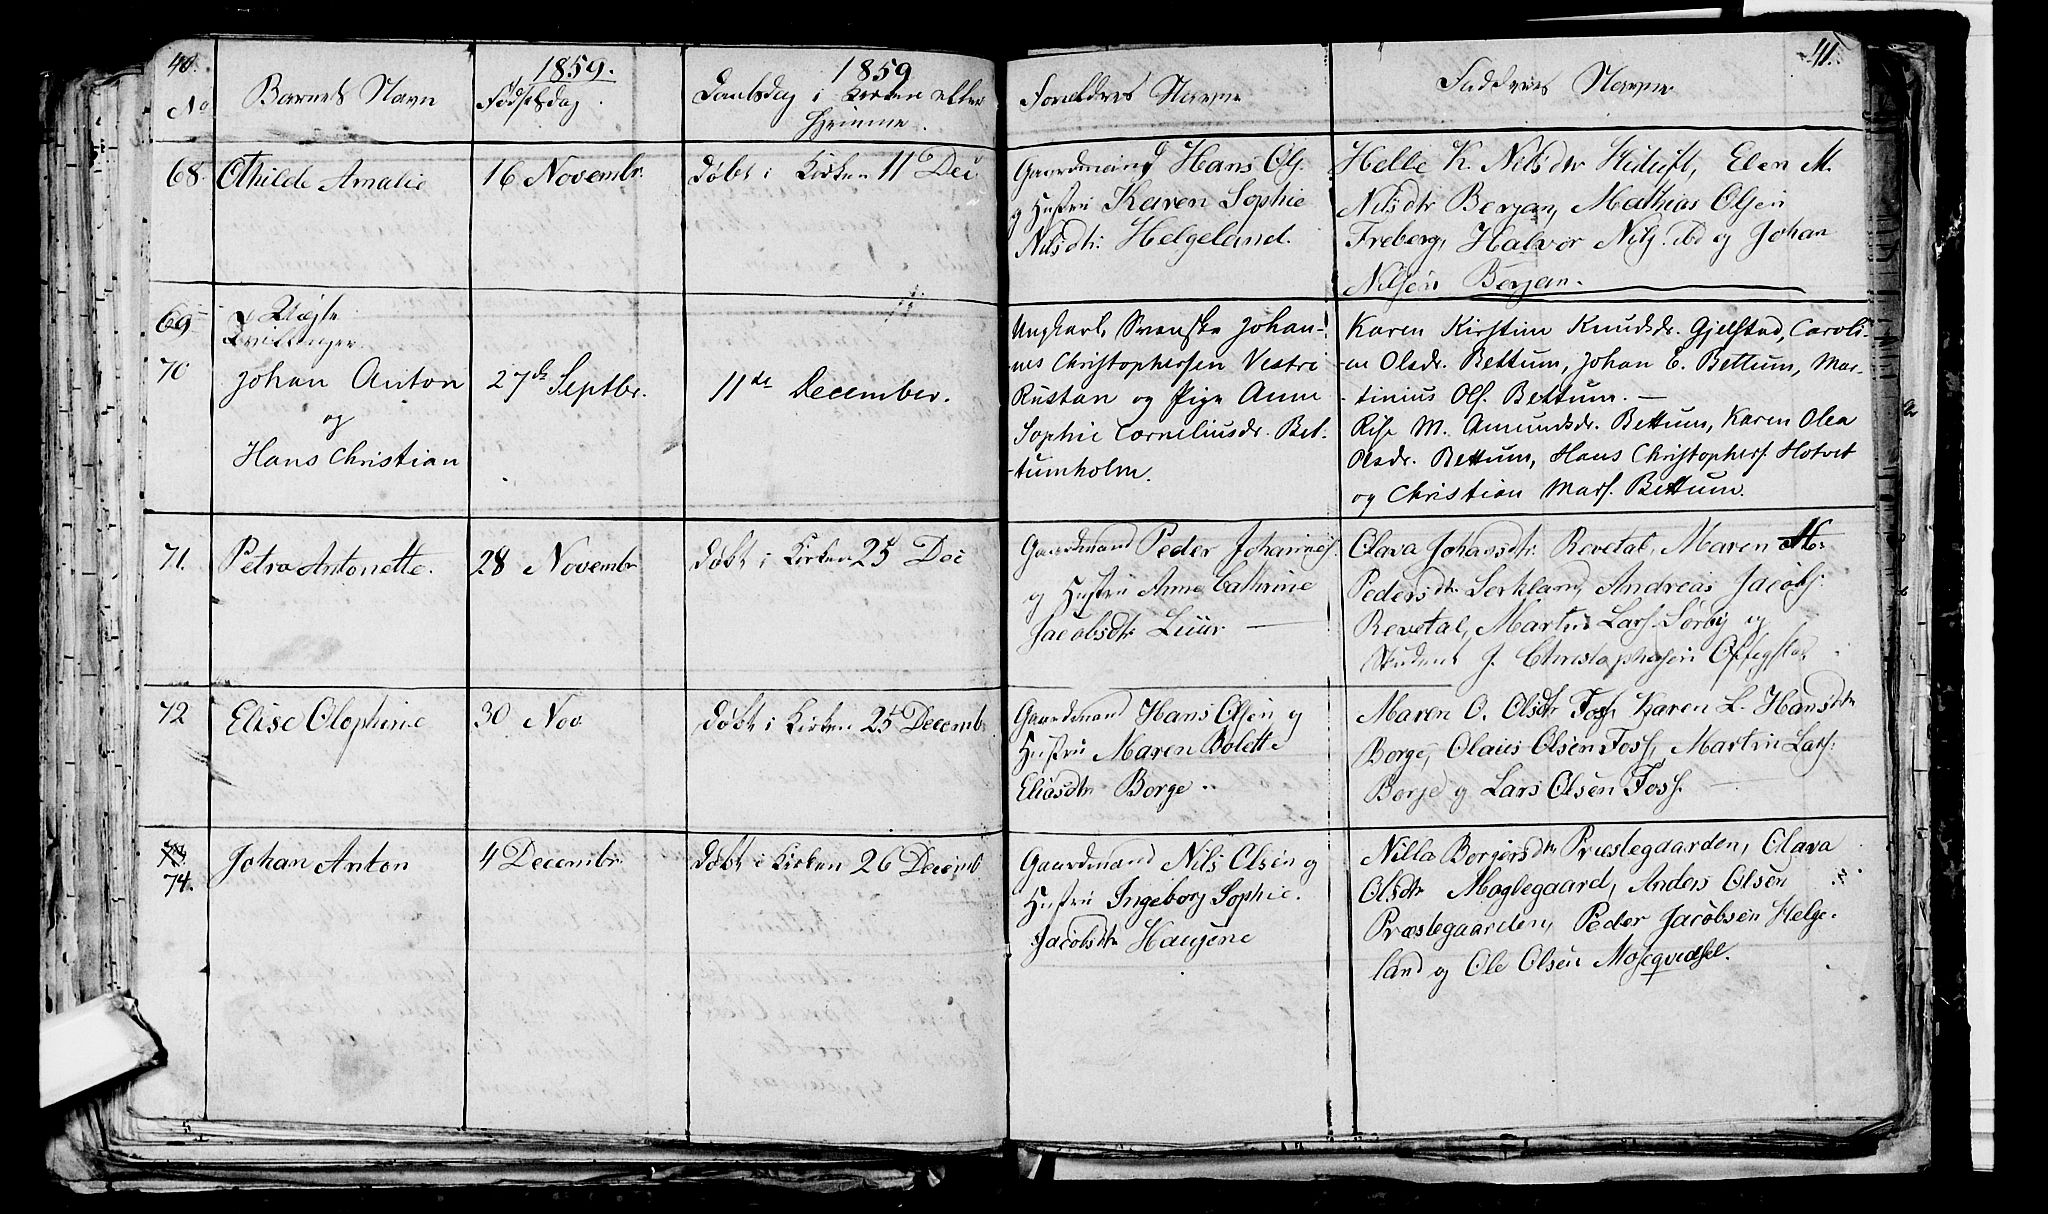 40.
No
Barnets Navn
1859.
Fødselsdag
1859
Daabsdag i Kirken eller
Hjemme.
Forældres Navne
Faddernes Navne
41.
68.
Othilde Amalie
16 Novembr.
døbt i Kirken 11 Dec
Gaardmand Hans Ols.
og Hustru Karen Sophie
Nilsdtr. Helgeland.
Helle K. Nilsdtr Elen M.
Nilsdtr Berjan, Mathias Olsen
Freberg, Halvor Nils. ibd og Johan
Nilsen Berjan.
69
Uægte
Tvillinger
70
Johan Anton
og
Hans Christian
27de Septbr.
11te December.
Ungkarl, Svenske Johan-
nes Christophersen Vestre
Rustan og Pige Anne
Sophie Corneliusdr. Bet-
-tumholm.
Karen Kirstine Knudsdr. Gjelstad, Caroli-
-ne Olsdr. Bettum, Johan E. Bettum, Mar-
-tinius Ols. Bettum. —
M. Amundsdr. Bettum, Karen Olea
Olsdr. Bettum, Hans Christophers. Hotvet
og Christian Mars. Bettum.
71.
Petra Antonette.
28 Novembr
døbt i Kirken 25 Dec
Gaardmand Peder Johannes.
og Hustru Anne Cathrine
Jacobsdtr Luur —
Olava Johansdtr. Revetal, Maren
Pedersdtr Serkland, Andreas Jacobs.
Revetal, Martin Lars. Sørby og
Student J. Christophersen
72
Elise Olophine
30 Nov
døbt i Kirken 25 Decembr
Gaardmand Hans Olsen og
Hustru Maren Bolette
Eliasdtr Borge
Maren O. Olsdtr Foss, Karen L. Hansdtr
Borge, Olaus Olsen Foss, Martin Lars.
Borge og Lars Olsen Foss.
73.
74.
Johan Anton
4 Decembr.
døbt i Kirken 26 Decemb
Gaardmand Nils Olsen og
Hustru Ingeborg Sophie
Jacobsdtr Haugene
Nilla Borgersdtr Præstegaarden, Olava
Olsdtr Maglegaard, Anders Olsen
Præstegaarden, Peder Jacobsen Helge-
land og Ole Olsen